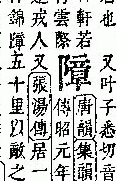 也 又叶子悉切音
軒若
雲際
障
唐韻集韻
傳昭元年
戎人又張湯傳居一
錦障五十里以敵之